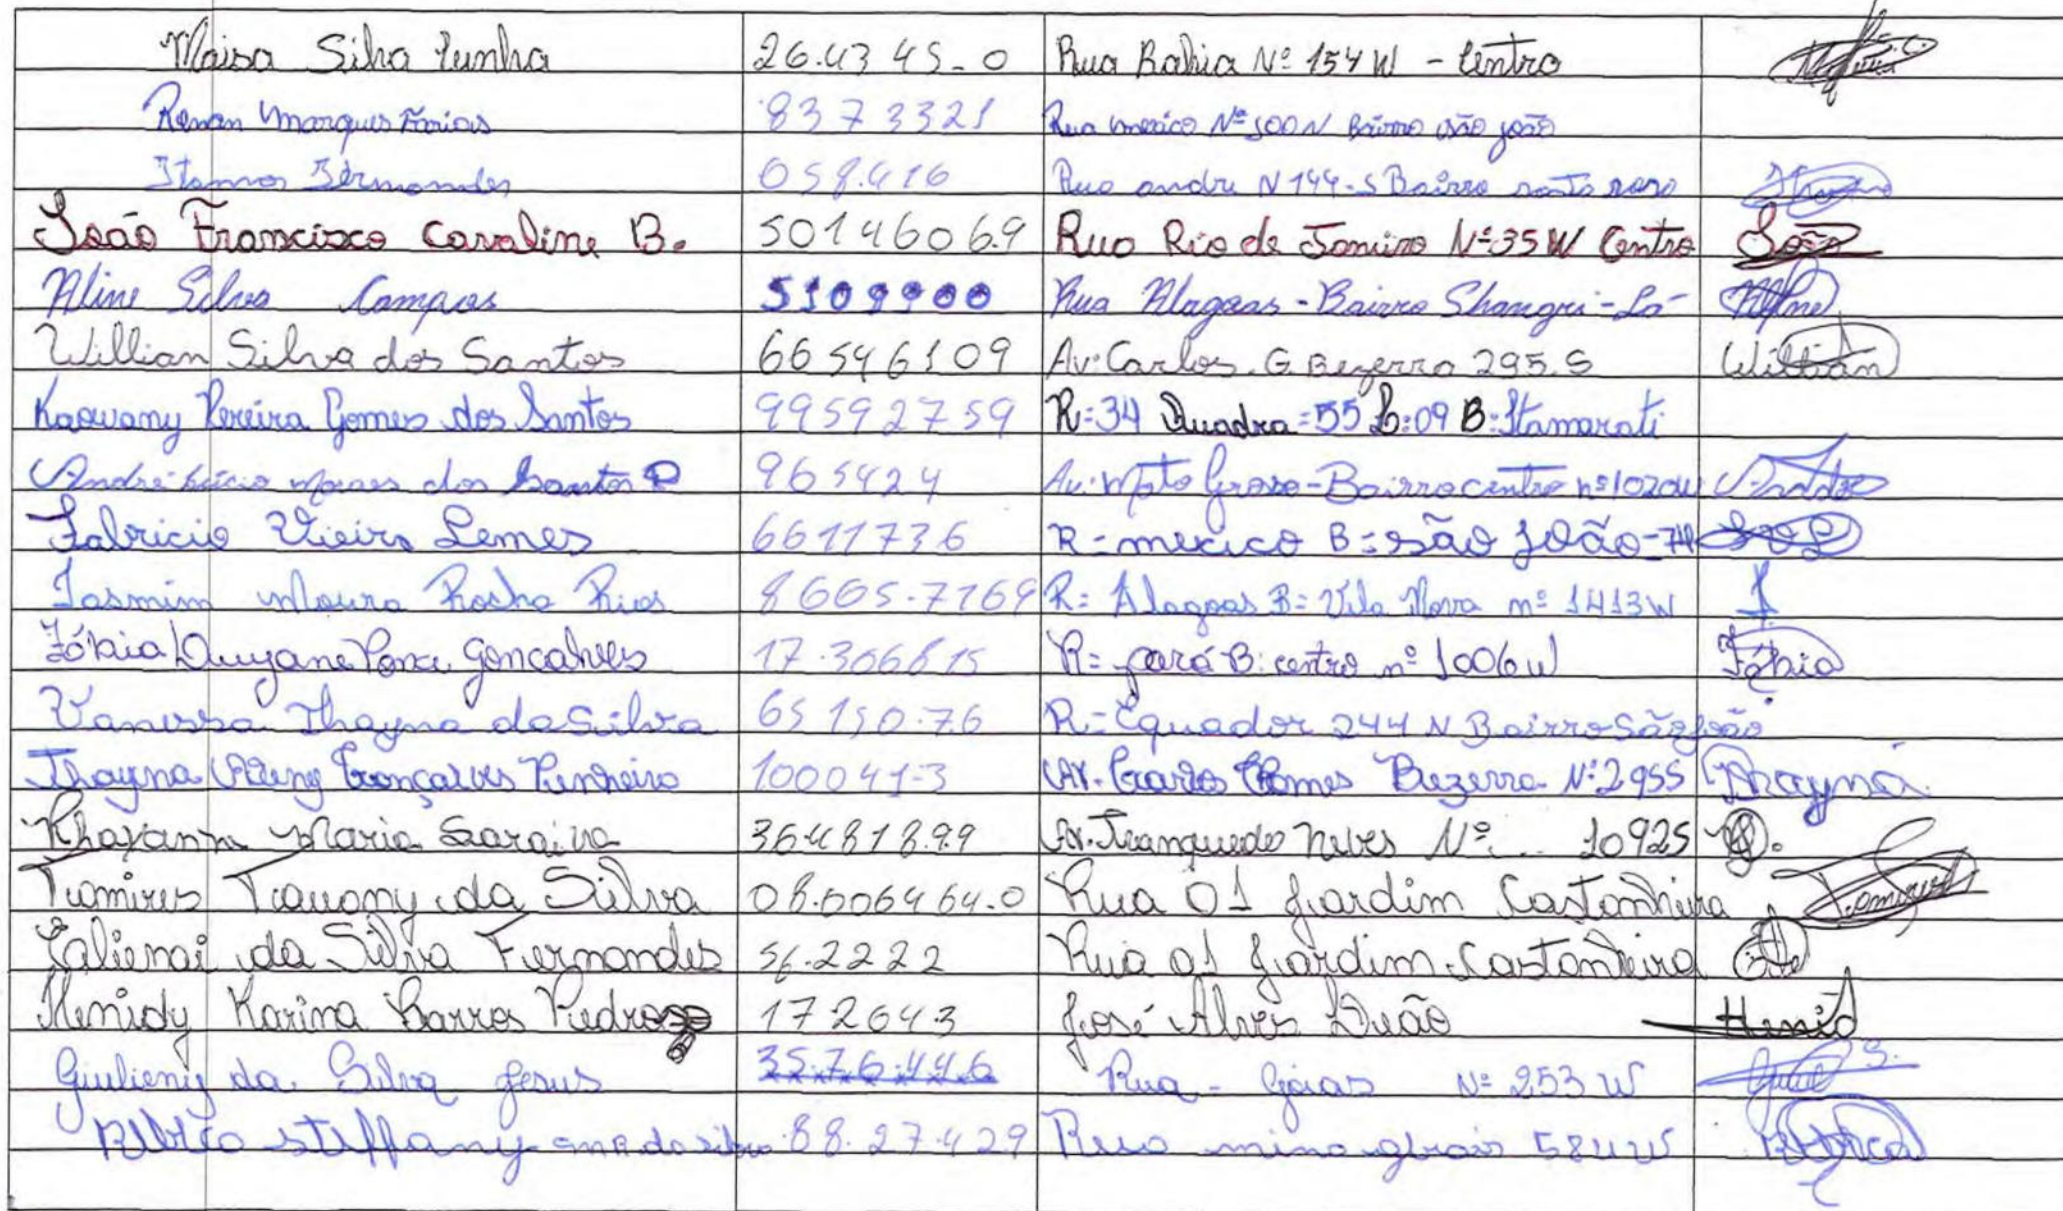 Maisa Silva Cunha 26.4345-0 Rua Bahia Nº 154 W - Centro
Renan Marques Farias 8373321 Rua mexico Nº 500 N Bairro são joão
Fernandes 058.416 Rua andre N 144-S Bairro
João Francisco Caroline B. 50146069 Rua Rio de Janeiro Nº 35 W Centro João
Aline Silva Campos 5109900 Rua Alagoas - Bairro Shangri-Lá Aline
Willian Silva dos Santos 66546109 Av: Carlos. G Bezerra 295.S Willian
Kaowany Pereira Gomes dos Santos 99592759 R:34 Quadra=55 L:09 B:Itamarati
André Lúcio dos Santos 965424 Av: Mato Groso-Bairro centro nº 1020W André
Fabricio Vieira Lemes 6611736 R= mexico B=são João-74
Iasmim Moura Rocha Rios 8665.7769 R= Alagoas B= Vila Nova nº 1413W
Fábia Duyane Gonçalves 17.306815 R= pará B: centro nº 1006W Fábia
Vanessa Thayna da Silva 65150.76 R= Equador 244 N Bairro São João
Thayna Gonçalves Pinheiro 100041-3 Av. Carlos Gomes Bezerra Nº 2955 Thayná
Maria Saraiva 364818.99 Av. Tranquedo neves Nº... 10925
Tamires Tauany da Silva 08.006464.0 Rua 01 Jardim Castanheira
da Silva Fernandes 56.2222 Rua 01 Jardim Castanheira
Karina Barros Pedroso 172643 José Alves
Giulieny da Silva Jesus 3576.446 Rua - Goias Nº 253 W
steffany da silva 88.27.429 Rua mina gerais 584W